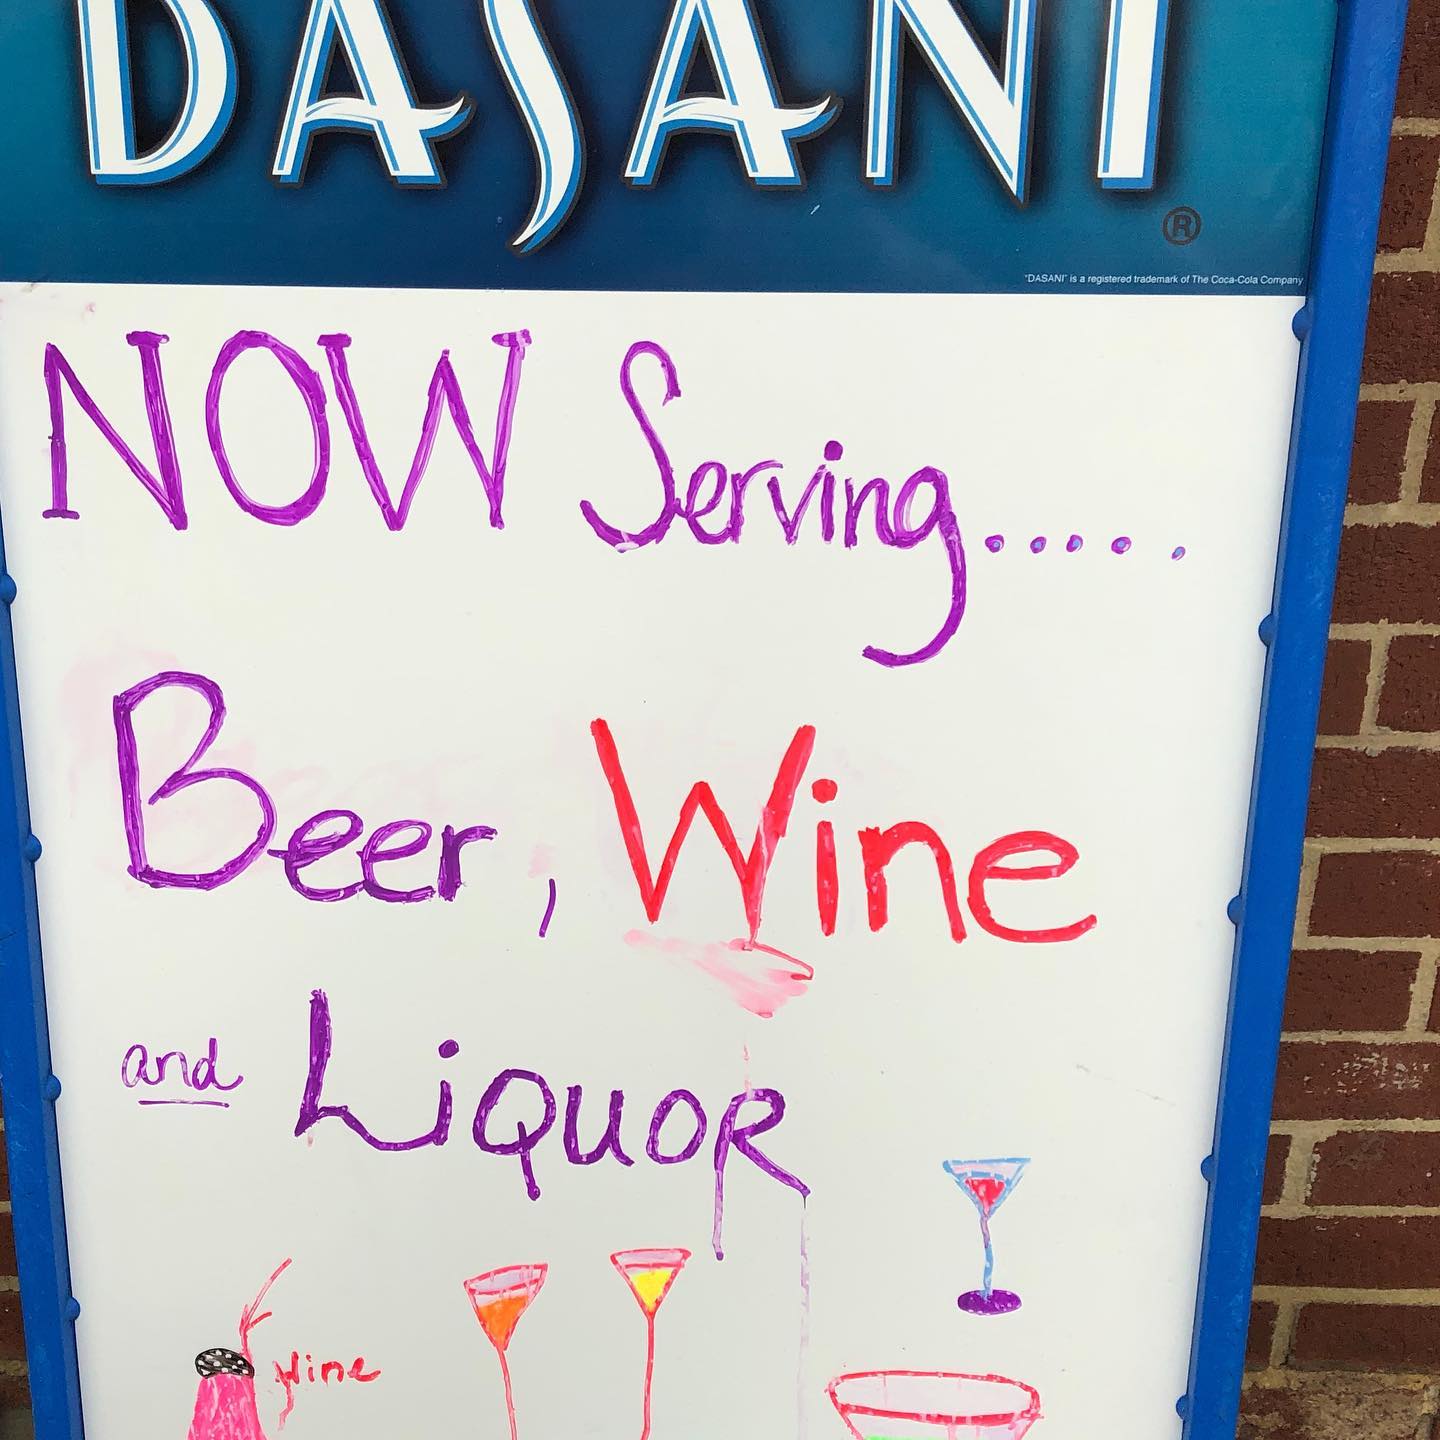 DASANI®
"DASANI" is a registered trademark of The Coca-Cola Company
NOW Serving.....
Beer, Wine
and LiQUOR
Wine